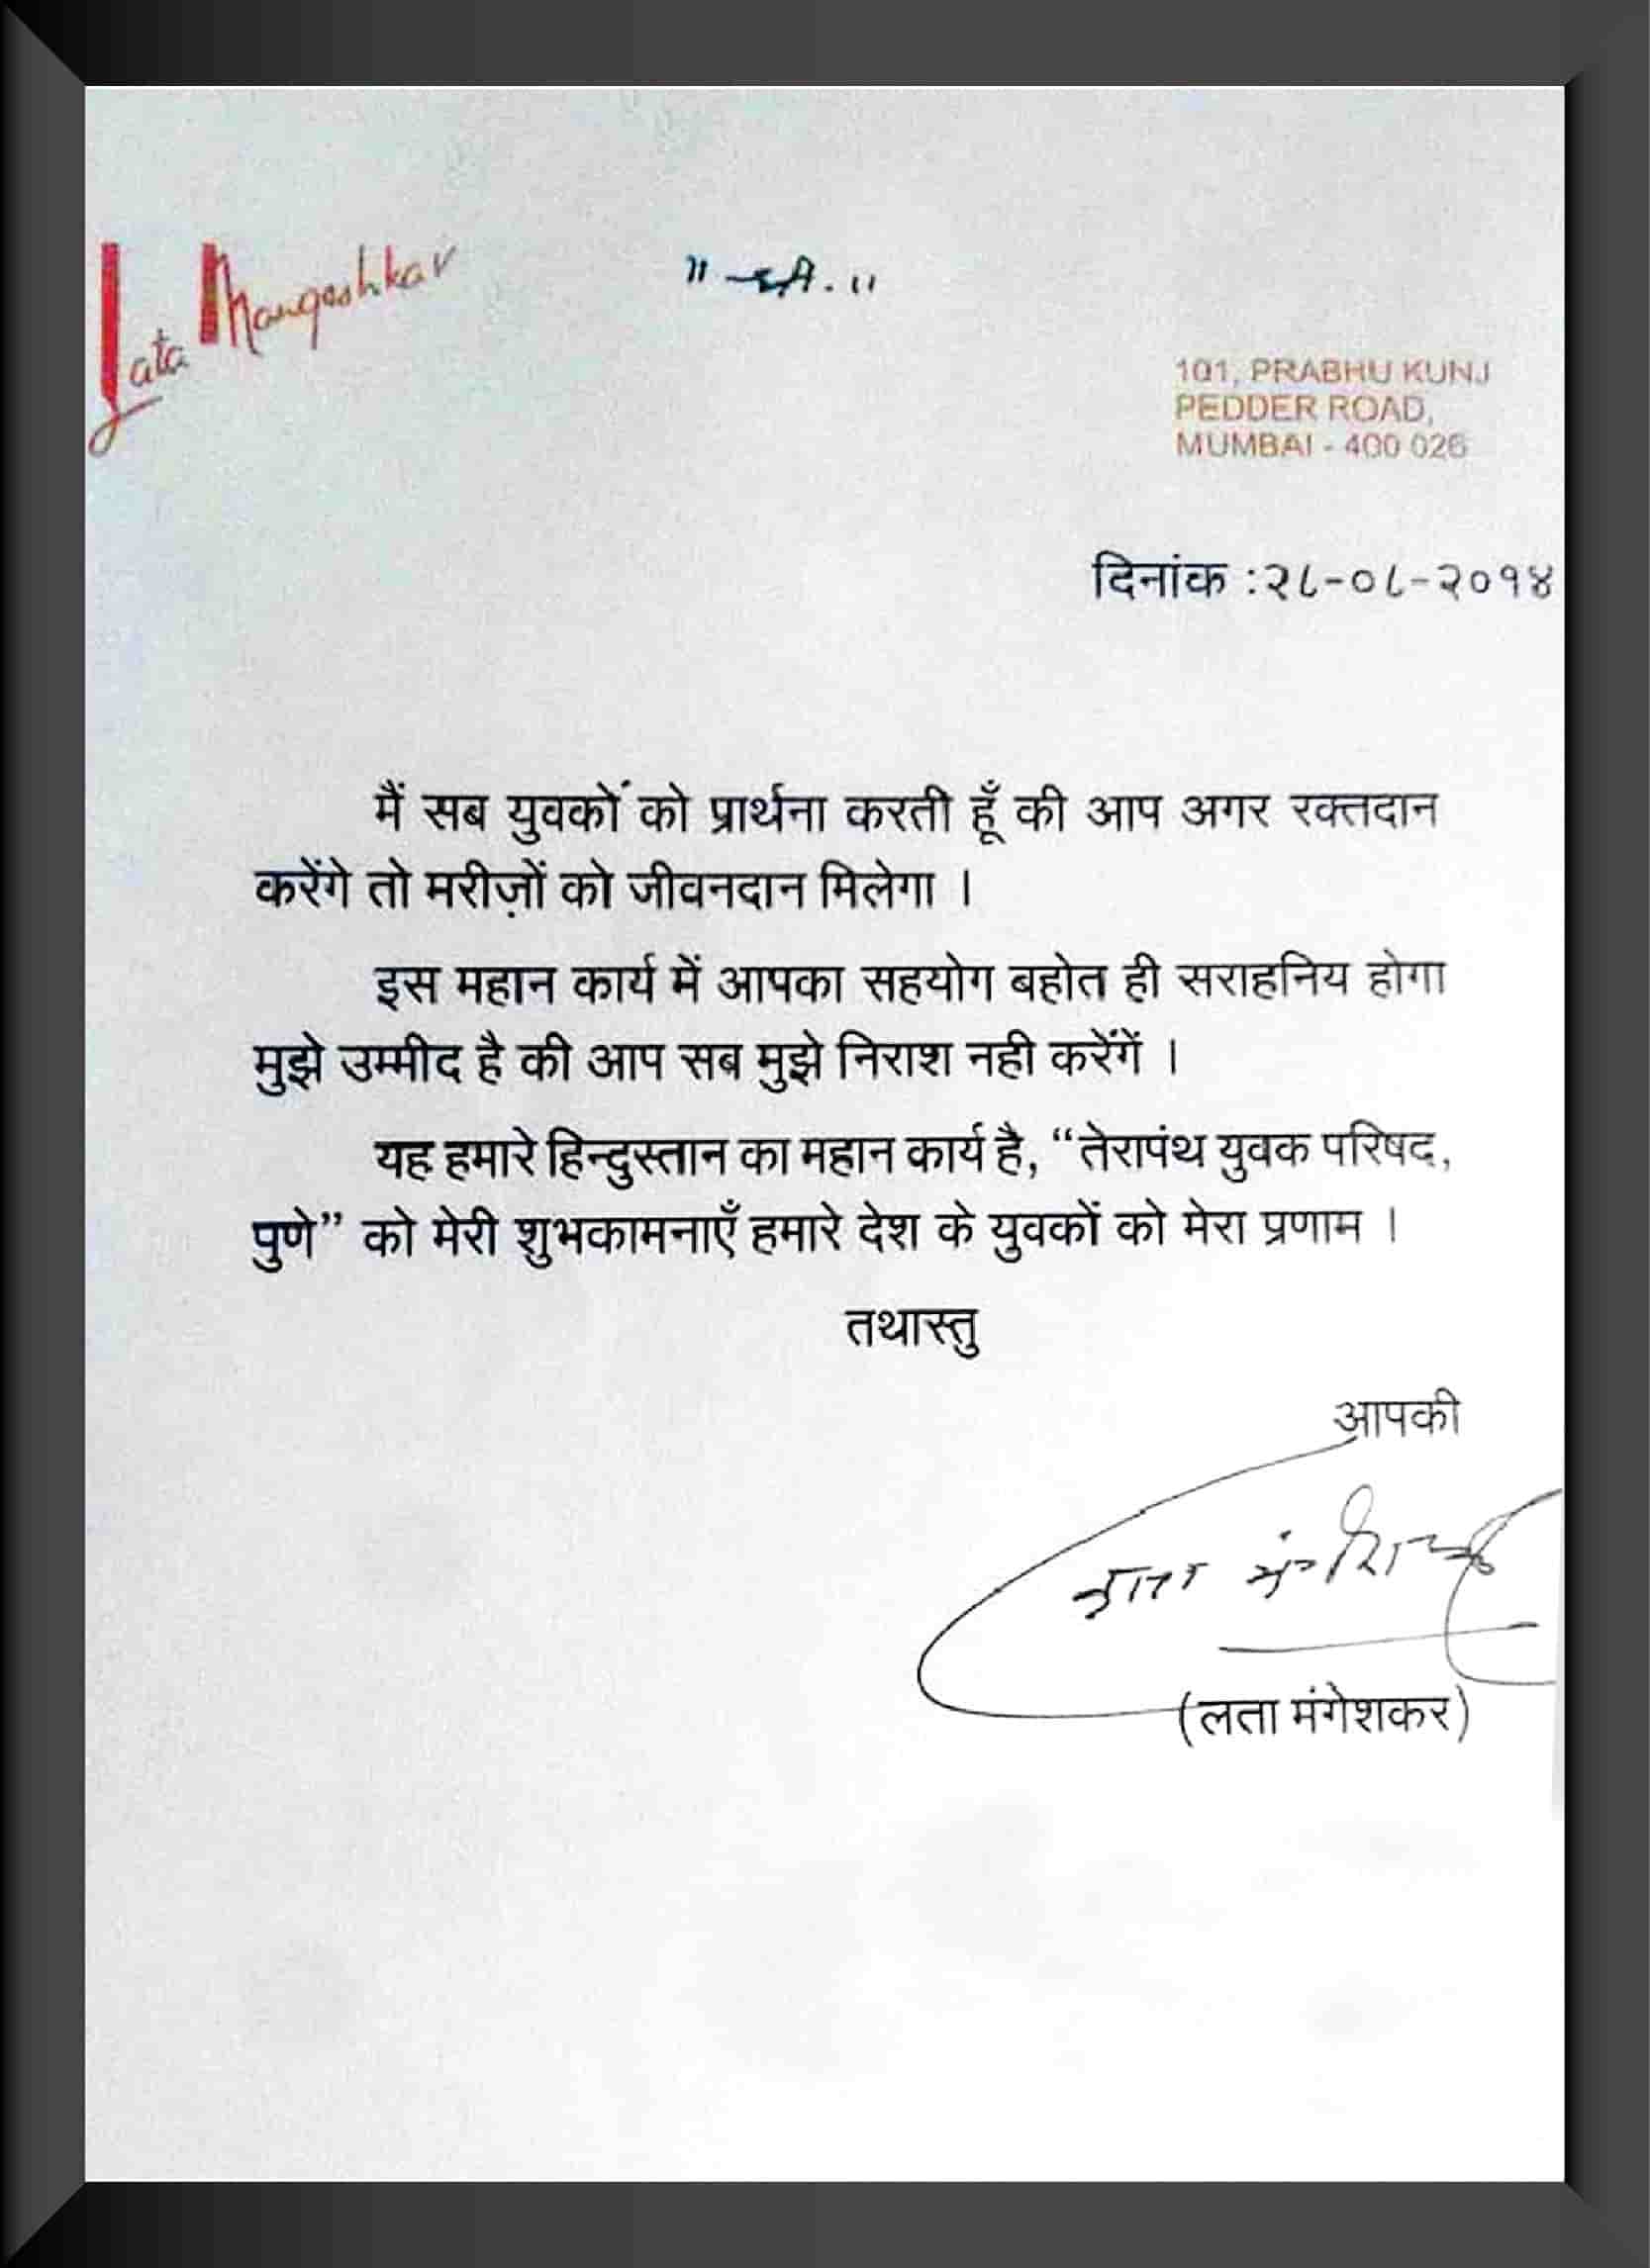 Lata Mangeshkar
" श्री. "
101, PRABHU KUNJ
PEDDER ROAD,
MUMBAI - 400 026
दिनांक :२८-०८-२०१४
मैं सब युवकों को प्रार्थना करती हूँ की आप अगर रक्तदान
करेंगे तो मरीज़ों को जीवनदान मिलेगा ।
इस महान कार्य में आपका सहयोग बहोत ही सराहनिय होगा
मुझे उम्मीद है की आप सब मुझे निराश नही करेंगें ।
यह हमारे हिन्दुस्तान का महान कार्य है, “तेरापंथ युवक परिषद,
पुणे” को मेरी शुभकामनाएँ हमारे देश के युवकों को मेरा प्रणाम ।
तथास्तु
आपकी
लता मंगेशकर
(लता मंगेशकर)